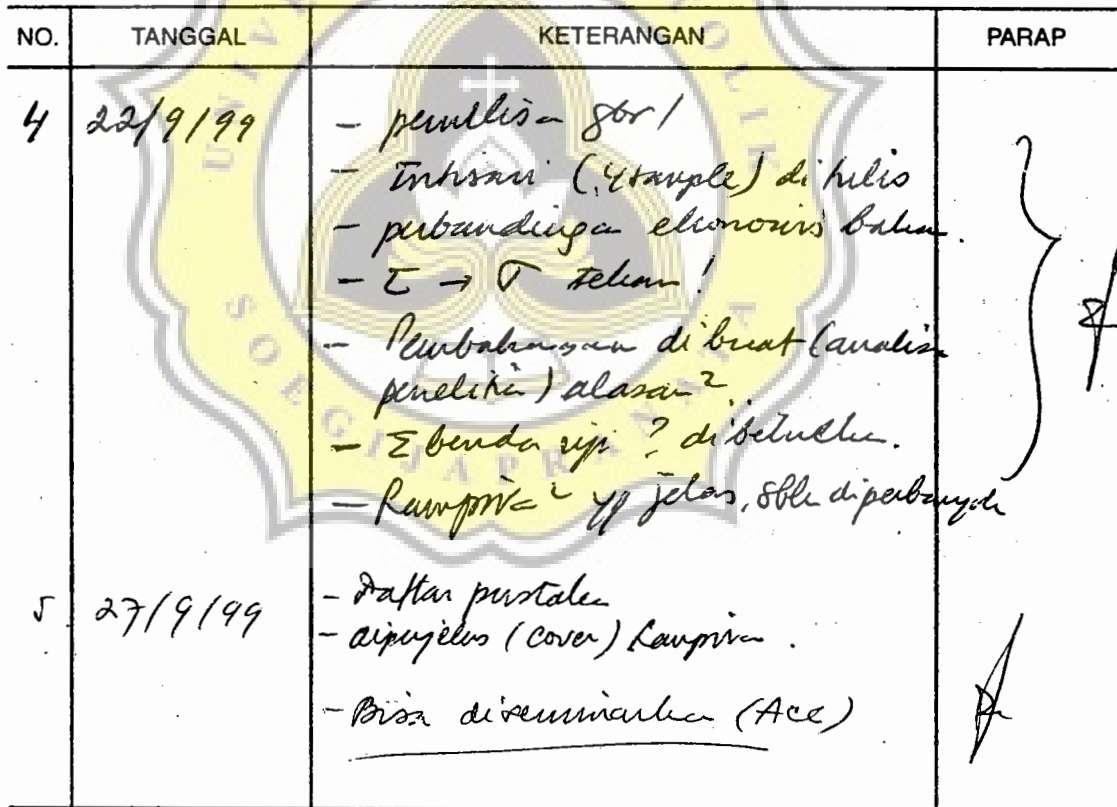 NO. TANGGAL KETERANGAN PARAP
4 22/9/99 - penulisan gbr /
- Intisari (4 sample) ditulis
- perbandingan ekonomis bahan.
- τ → σ tekan !
- Pembahasan dibuat (analisa
penelitian) alasan2
- Σ benda uji ? dibetulkan.
- Lampiran2 yg jelas, sblm diperbanyak
5 27/9/99 - Daftar pustaka
- diperjelas (cover) Lampiran.
- Bisa diseminarkan (Acc)
SOEGIJAPRANATA